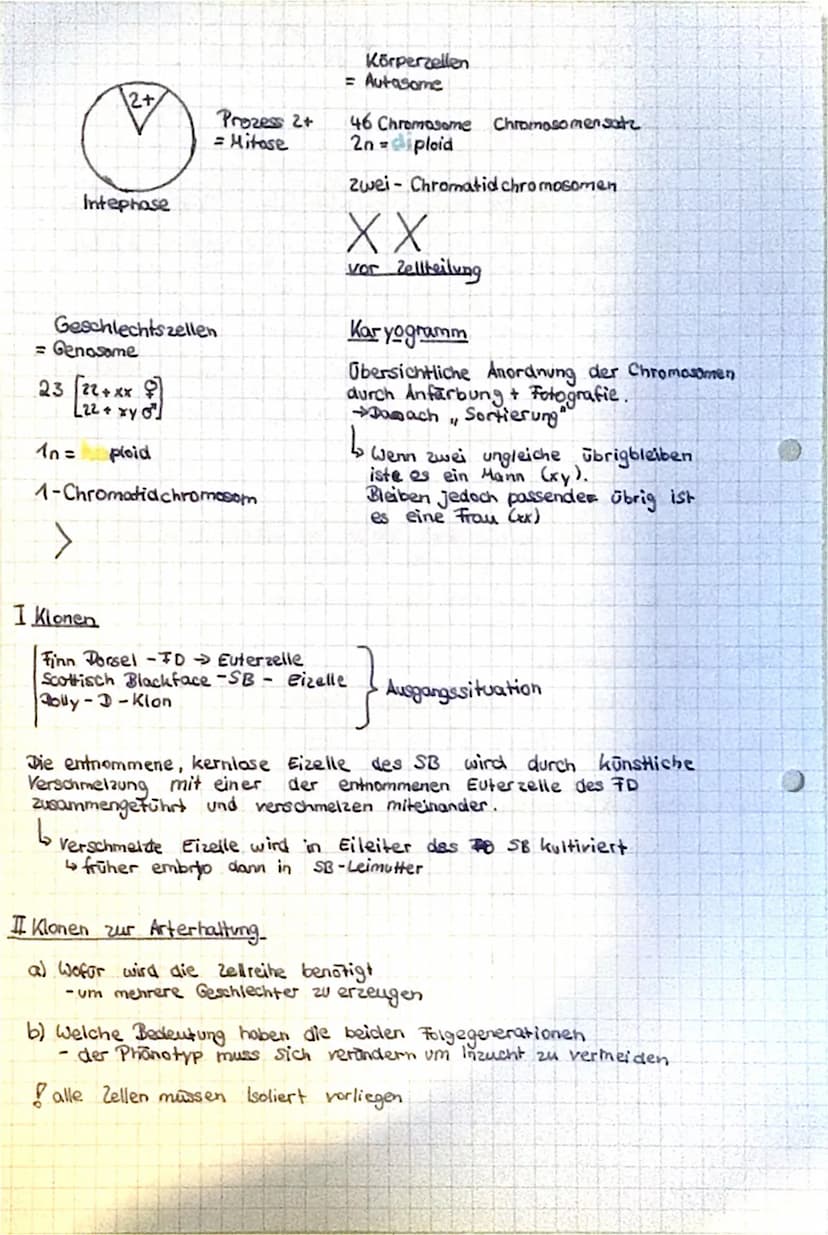 Körperzellen
= Autosome
2+
Prozess 2+
= Mitose
Intephase
46 Chromosome Chromosomensatz
2n = diploid
zwei - Chromatidchromosomen
XX
vor Zellteilung
Geschlechtszellen
= Genosome
23 [22 + xx ♀
22 + xy ♂]
1n = haploid
1-Chromatidchromosom
Karyogramm
Übersichtliche Anordnung der Chromosomen
durch Anfärbung + Fotografie.
→ Danach „Sortierung"
↳ Wenn zwei ungleiche übrigbleiben
iste es ein Mann (xy).
Bleiben jedoch passende übrig ist
es eine Frau (xx)
I Klonen
Finn Dorsel - FD → Euterzelle
Scottisch Blackface - SB - Eizelle
Dolly - D - Klon
Ausgangssituation
Die entnommene, kernlose Eizelle des SB wird durch künstliche
Verschmelzung mit einer der entnommenen Euterzelle des FD
zusammengeführt und verschmelzen miteinander.
↳ Verschmelzte Eizelle wird in Eileiter des SB kultiviert
↳ früher embryo dann in SB-Leimutter
II Klonen zur Arterhaltung
a) Wofür wird die Zellreihe benötigt
- um mehrere Geschlechter zu erzeugen
b) Welche Bedeutung haben die beiden Folgegenerationen
- der Phänotyp muss sich verändern um Inzucht zu vermeiden
! alle Zellen müssen isoliert vorliegen